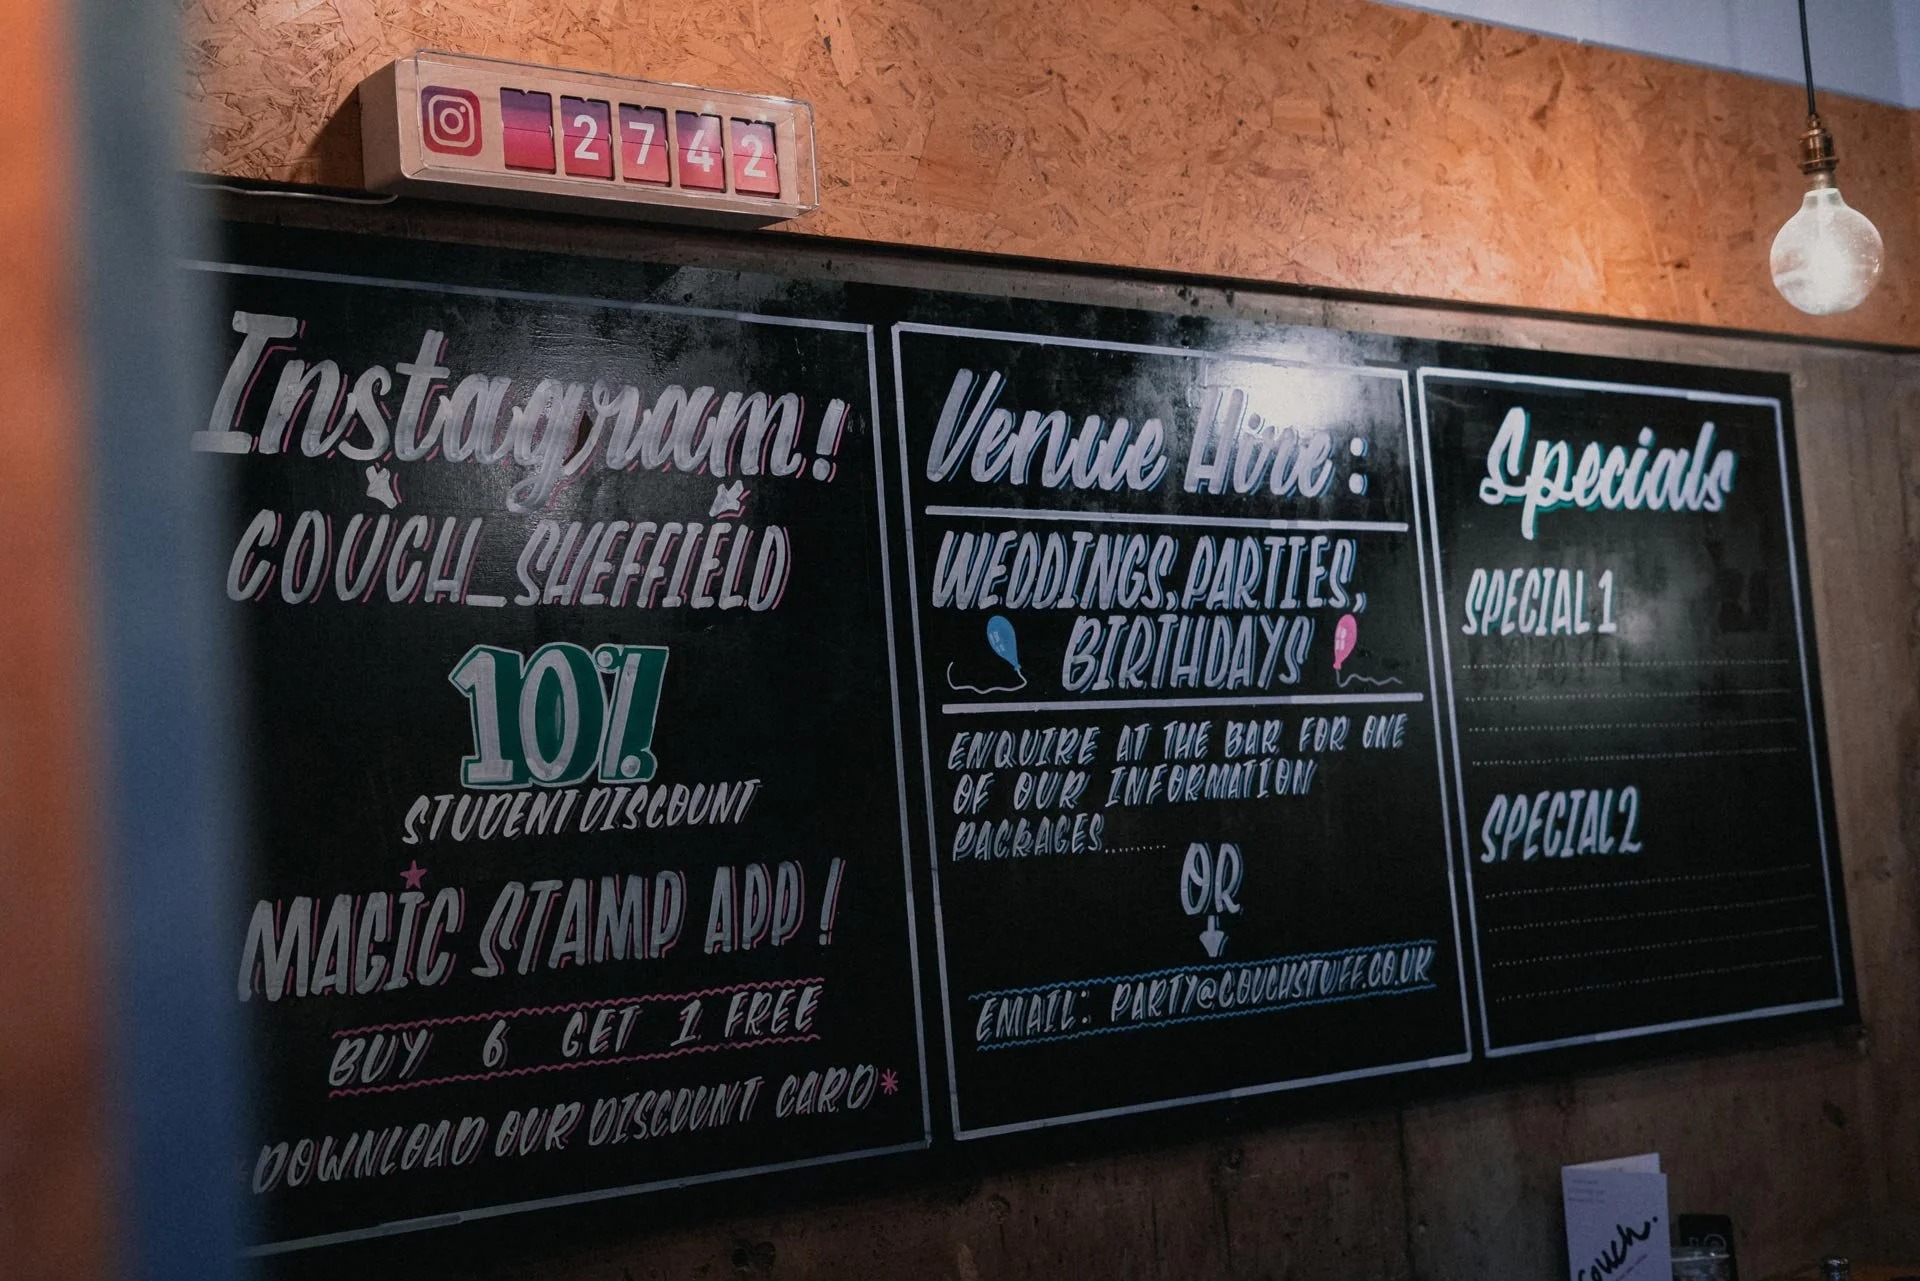 2742
Instagram!
COUCH_SHEFFIELD
10%
STUDENT DISCOUNT
MAGIC STAMP APP!
BUY 6 GET 1 FREE
DOWNLOAD OUR DISCOUNT CARD*
Venue Hire:
WEDDINGS, PARTIES,
BIRTHDAYS
ENQUIRE AT THE BAR FOR ONE
OF OUR INFORMATION
PACKAGES.........
OR
EMAIL: PARTY@COUCHSTUFF.CO.UK
Specials
SPECIAL 1
SPECIAL 2
couch.